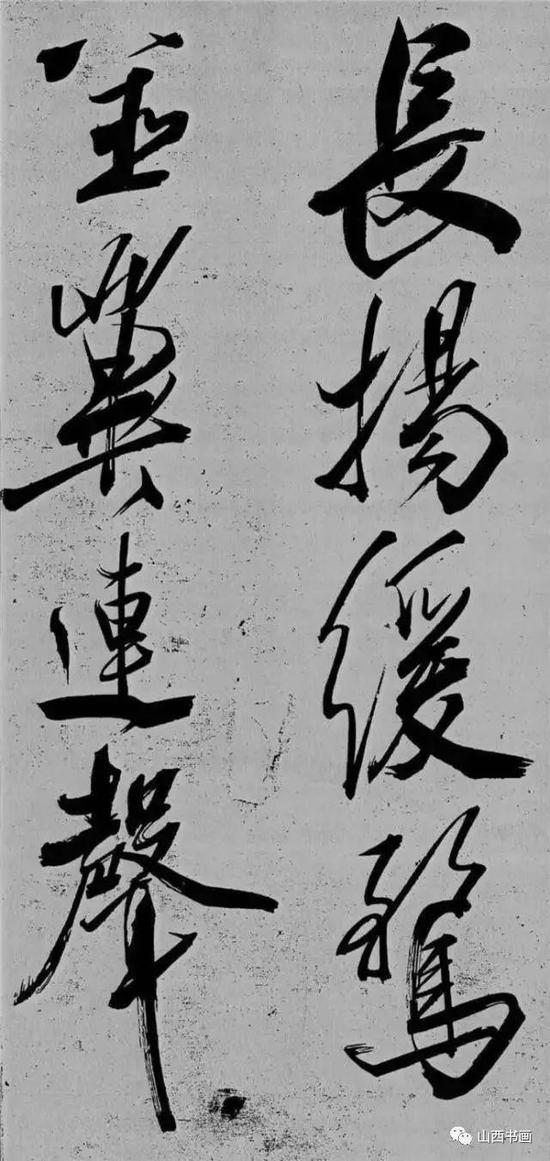 長揚緩騖
並翼連聲
山西书画